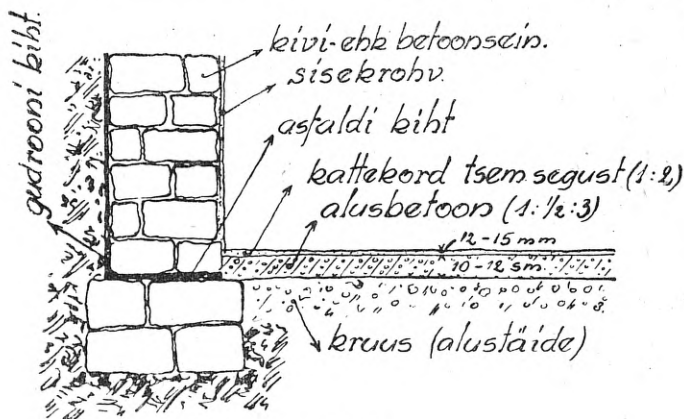 gudrooni kiht.
kivi-ehk betoonsein.
sisekrohv.
asfaldi kiht
kattekord tsem.segust (1:2)
alusbetoon (1:½:3)
12-15 mm
10-12 sm.
kruus (alustäide)